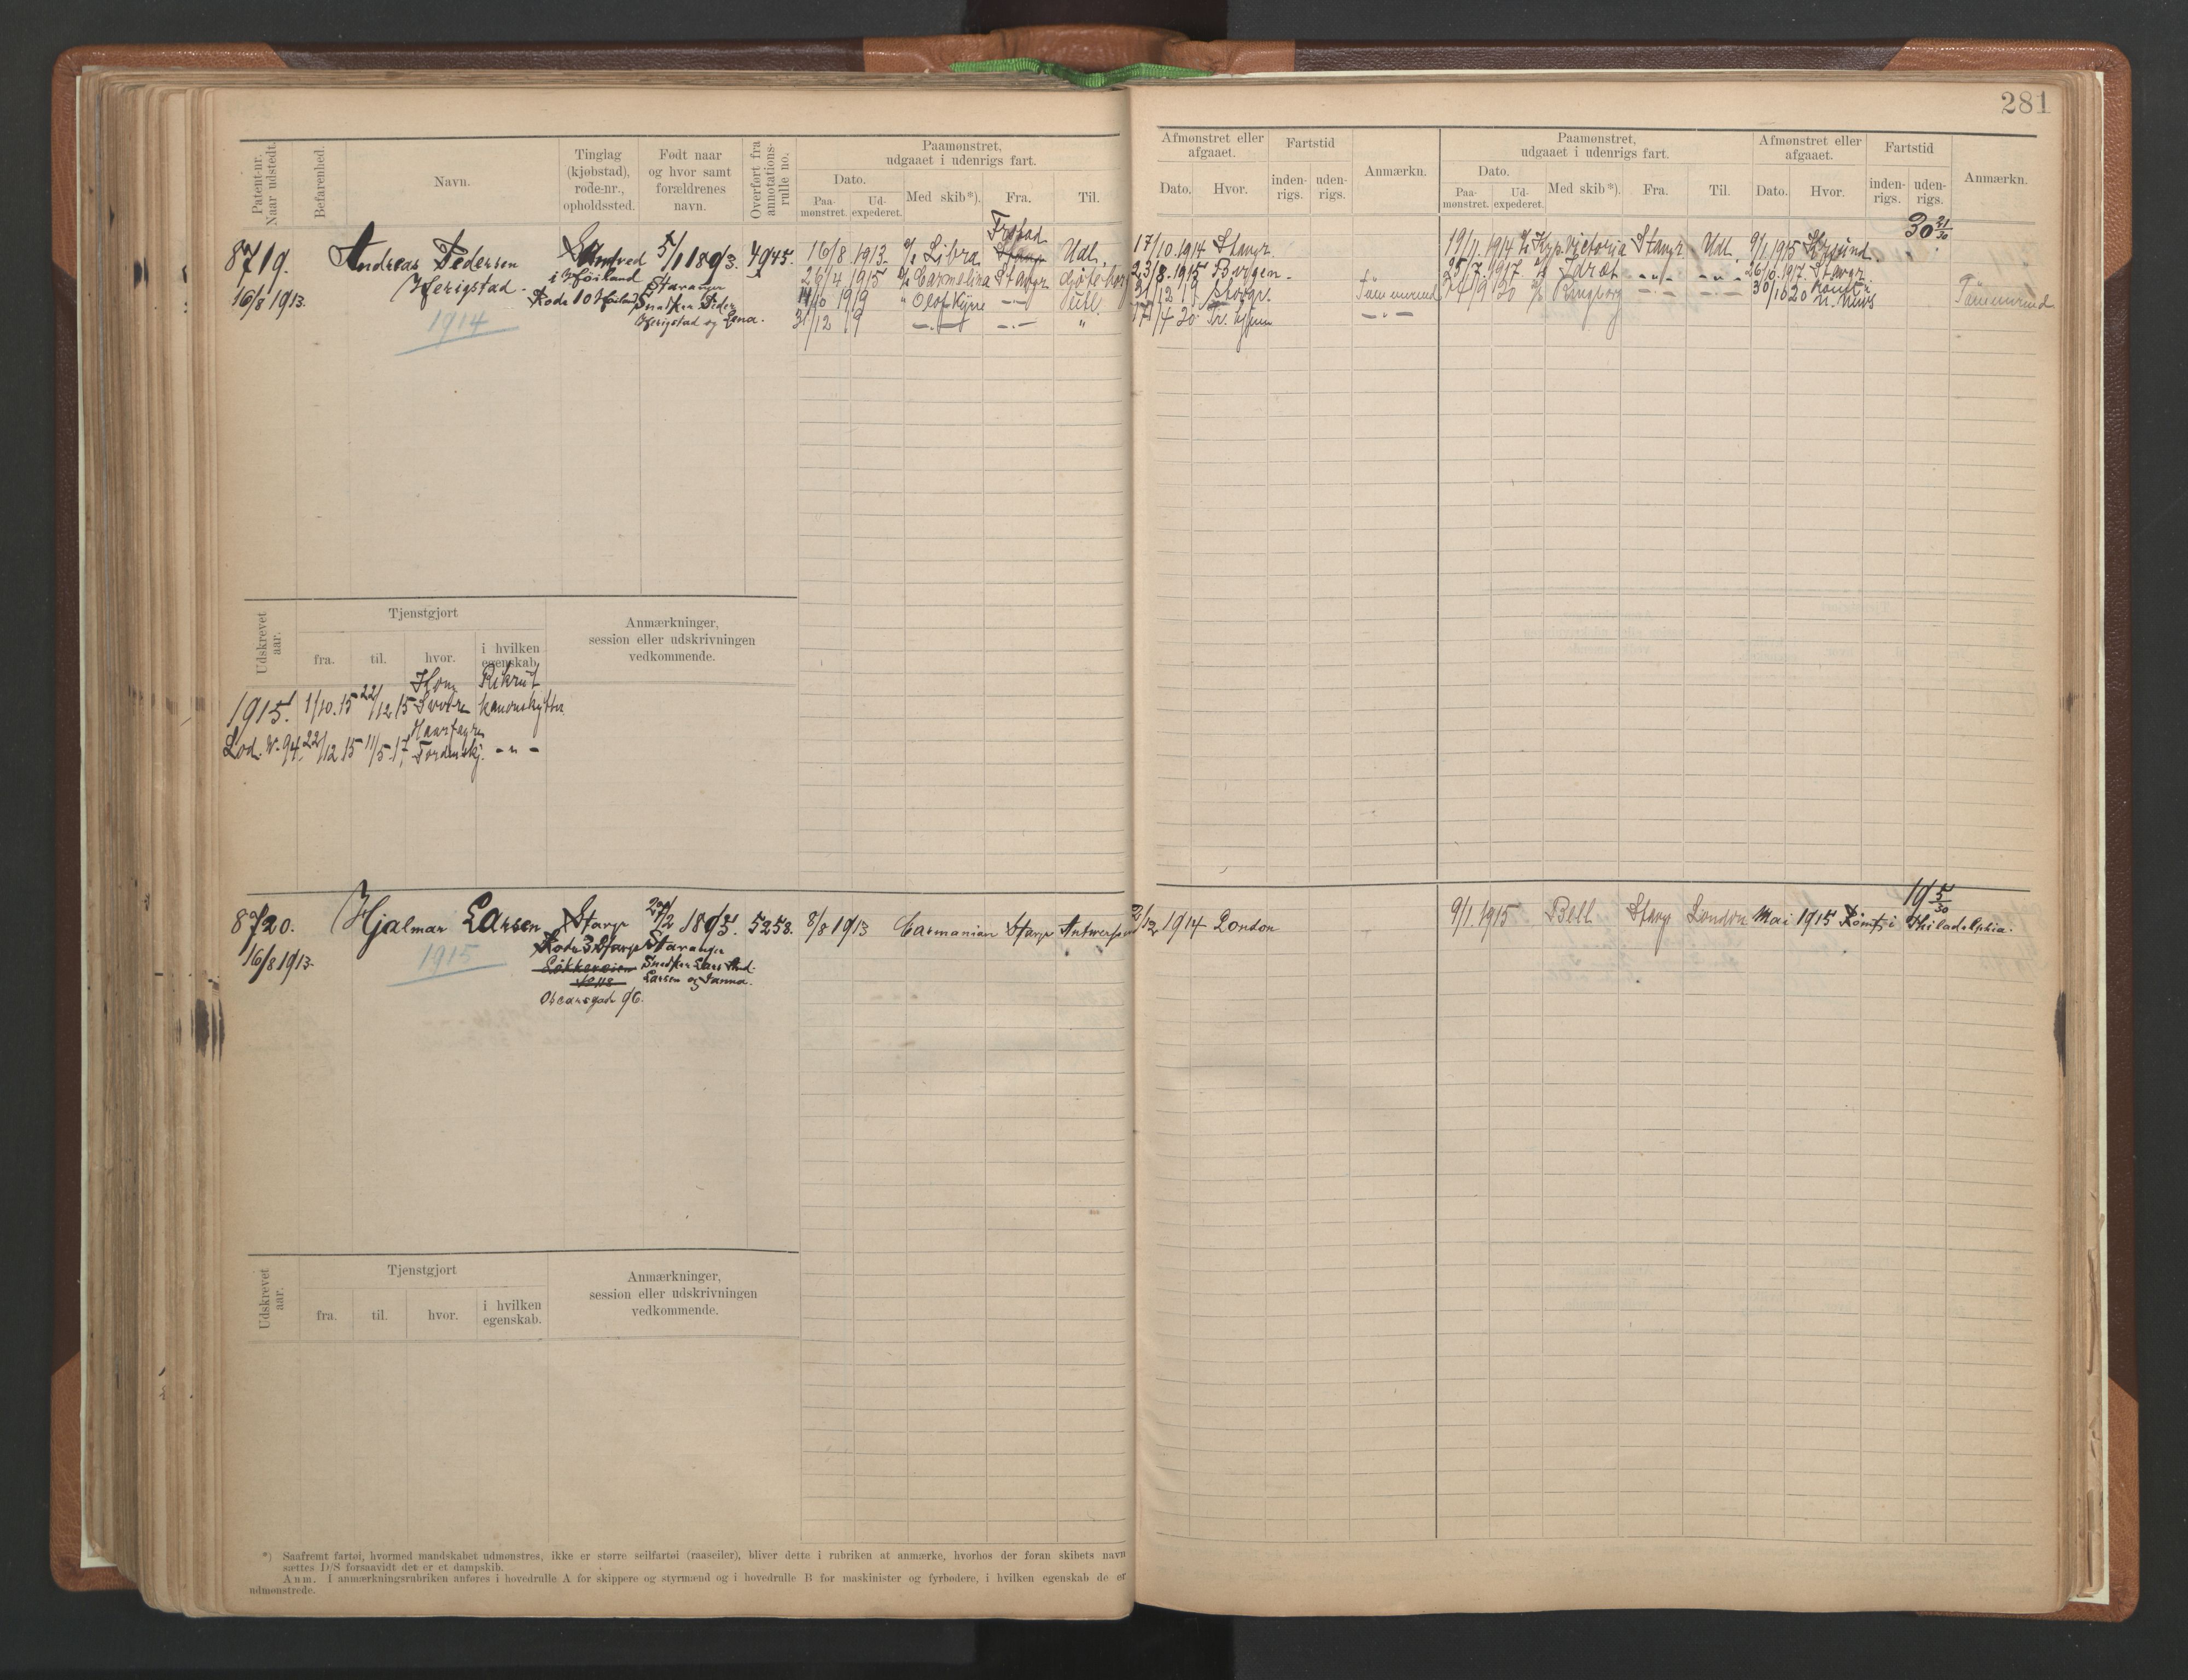 281
Patent-nr.
Naar udstedt.
Befarenhed.
Navn.
Tinglag
(kjøbstad),
rode-nr.,
opholdssted.
Født naar
og hvor samt
forældrenes
navn.
Overført fra
annotations-
rulle no.
Paamønstret,
udgaaet i udenrigs fart.
Dato.
Paa-
mønstret.
Ud-
expederet.
Med skib*).
Fra.
Til.
Afmønstret eller
afgaaet.
Dato.
Hvor.
Fartstid
inden-
rigs.
uden-
rigs.
Anmærkn.
Paamønstret,
udgaaet i udenrigs fart.
Dato.
Paa-
mønstret.
Ud-
expederet.
Med skib*).
Fra.
Til.
Afmønstret eller
afgaaet.
Dato.
Hvor.
Fartstid
inden-
rigs.
uden-
rigs.
Anmærkn.
30 21/30
8719.
16/8 1913.
Andreas Pedersen
Herigstad.
1914
i Høiland
Rode 10 Høiland
5/1 1893.
Stavanger
Snedker Peder
Herigstad og Lena.
4945.
16/8 1913 Libra Fr.stad Stavgr Udl.
17/10 1914 Stavgr.
26/4 1915 Carmelina Stavgr. Gjøteborg
23/8 1915 Bergen
14/10 1919 " Olof Kyrre Utl.
31/12 19
31/12 19 "
17/4 20
19/11 1914 Victoria Stavgr Udl. 9/1 1915 Kr.sund.
25/7 1917 Idræt - " - - " - 26/9 1917 Stavgr.
24/9 20 Ringborg 30/10 20
Tømmermand
Udskrevet
aar.
Tjenstgjort
fra.
til.
hvor.
i hvilken
egenskab.
Anmærkninger,
session eller udskrivningen
vedkommende.
1915. 1/10.15 22/12 15 Rekrut
Lod. Nr. 94. 22/12 15 11/5 17 Tordenskj. - " -
8720.
16/8 1913.
Hjalmar Larsen
1915
Stavgr
Rode 3 Stavgr
Løkkeveien
Oscarsgade 96.
27/2 1895.
Stavanger
Snedker Lars And.
Larsen og Janna.
5258.
8/8 1913 Carmanian Stavgr Antwerpen
2/12 1914 London
9/1 1915 Bell Stavg London Mai 1915 Rømt i Philadelphia.
10 5/30
Udskrevet
aar.
Tjenstgjort
fra.
til.
hvor.
i hvilken
egenskab.
Anmærkninger,
session eller udskrivningen
vedkommende.
*) Saafremt fartøi, hvormed mandskabet udmønstres, ikke er større seilfartøi (raaseiler), bliver dette i rubriken at anmærke, hvorhos der foran skibets navn
sættes D/S forsaavidt det er et dampskib.
Anm. I anmærkningsrubriken anføres i hovedrulle A for skippere og styrmænd og i hovedrulle B for maskinister og fyrbødere, i hvilken egenskab de er
udmønstrede.